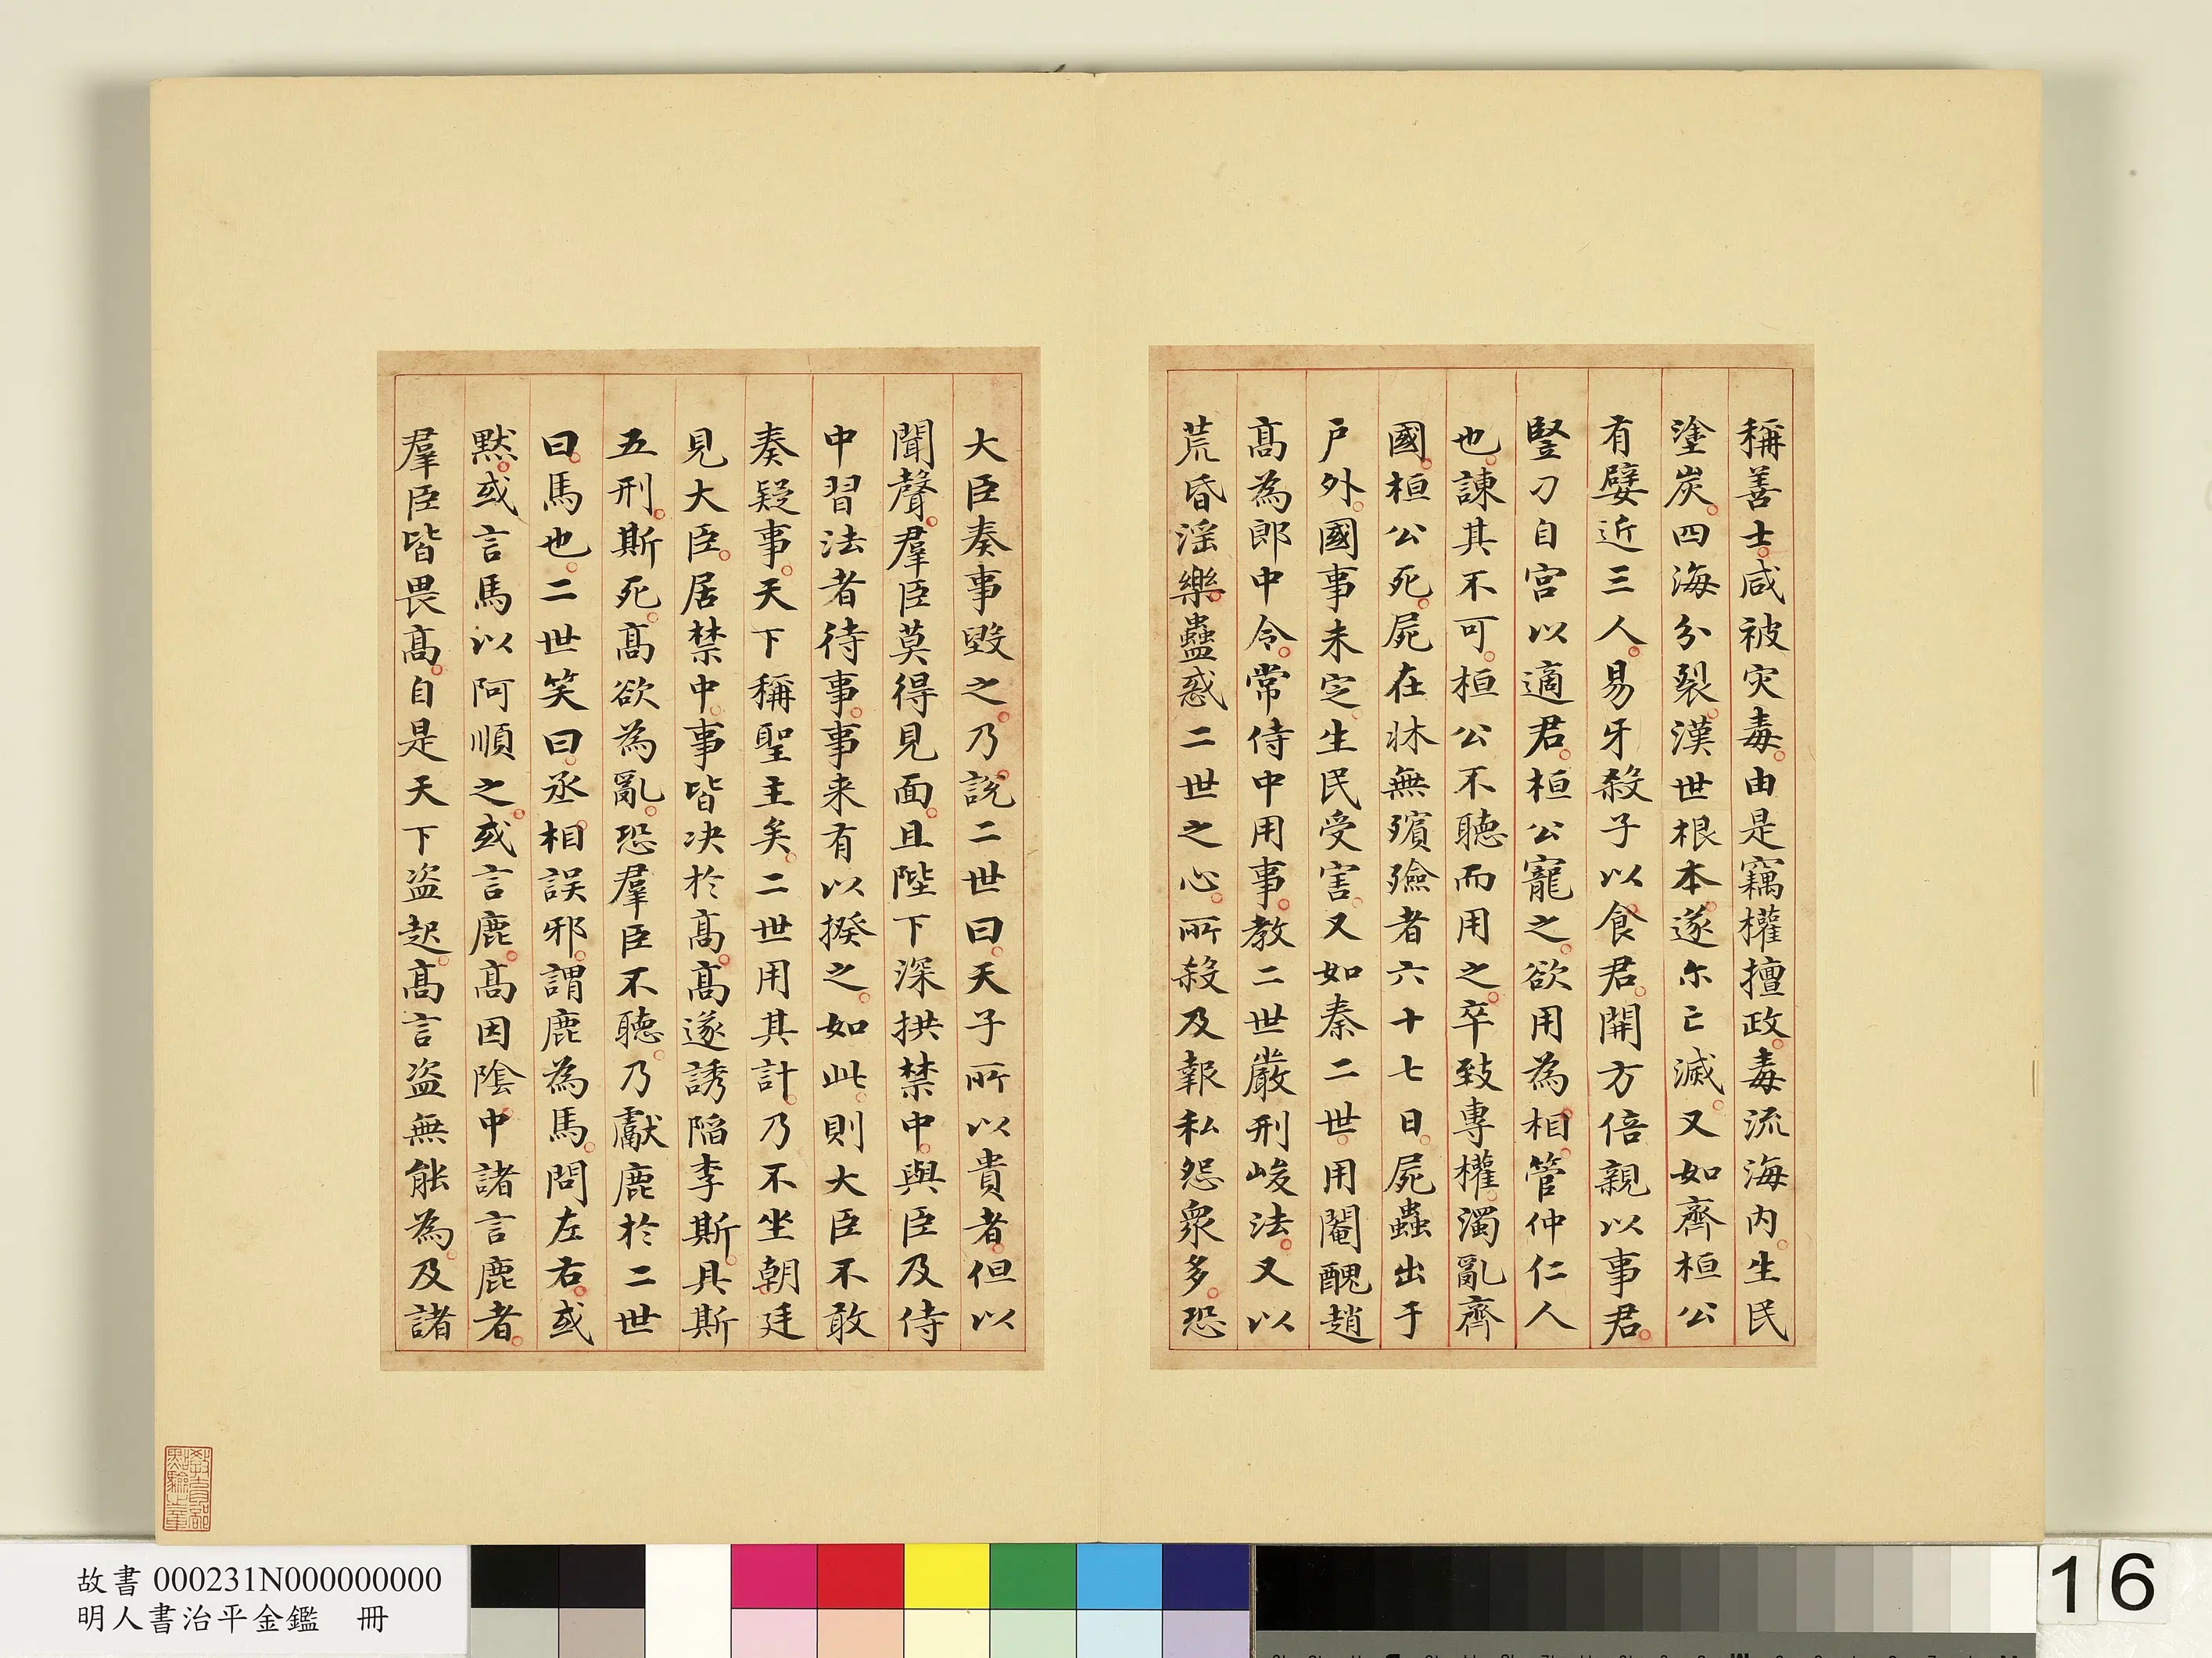 稱善士咸被灾毒由是竊權擅政毒流海内生民
塗炭四海分裂漢世根本遂尓亡滅又如齊桓公
有嬖近三人易牙殺子以食君開方倍親以事君
豎刀自宫以適君桓公寵之欲用為相管仲仁人
也諫其不可桓公不聽而用之卒致專權濁亂齊
國桓公死屍在牀無殯殮者六十七日屍蟲出于
户外國事未定生民受害又如秦二世用閹醜趙
髙為郎中令常侍中用事教二世嚴刑峻法又以
荒昏淫樂蠱惑二世之心所殺及報私怨衆多恐
大臣奏事毀之乃說二世曰天子所以貴者但以
聞聲羣臣莫得見面且陛下深拱禁中與臣及侍
中習法者待事事来有以揆之如此則大臣不敢
奏疑事天下稱聖主矣二世用其計乃不坐朝廷
見大臣居禁中事皆决於髙髙遂誘陷李斯具斯
五刑斯死髙欲為亂恐羣臣不聽乃獻鹿於二世
曰馬也二世笑曰丞相誤邪謂鹿為馬問左右或
默或言馬以阿順之或言鹿髙因陰中諸言鹿者
羣臣皆畏髙自是天下盗起髙言盗無能為及諸
教育部
點驗之章
故書 000231N000000000
明人書治平金鑑 冊
16